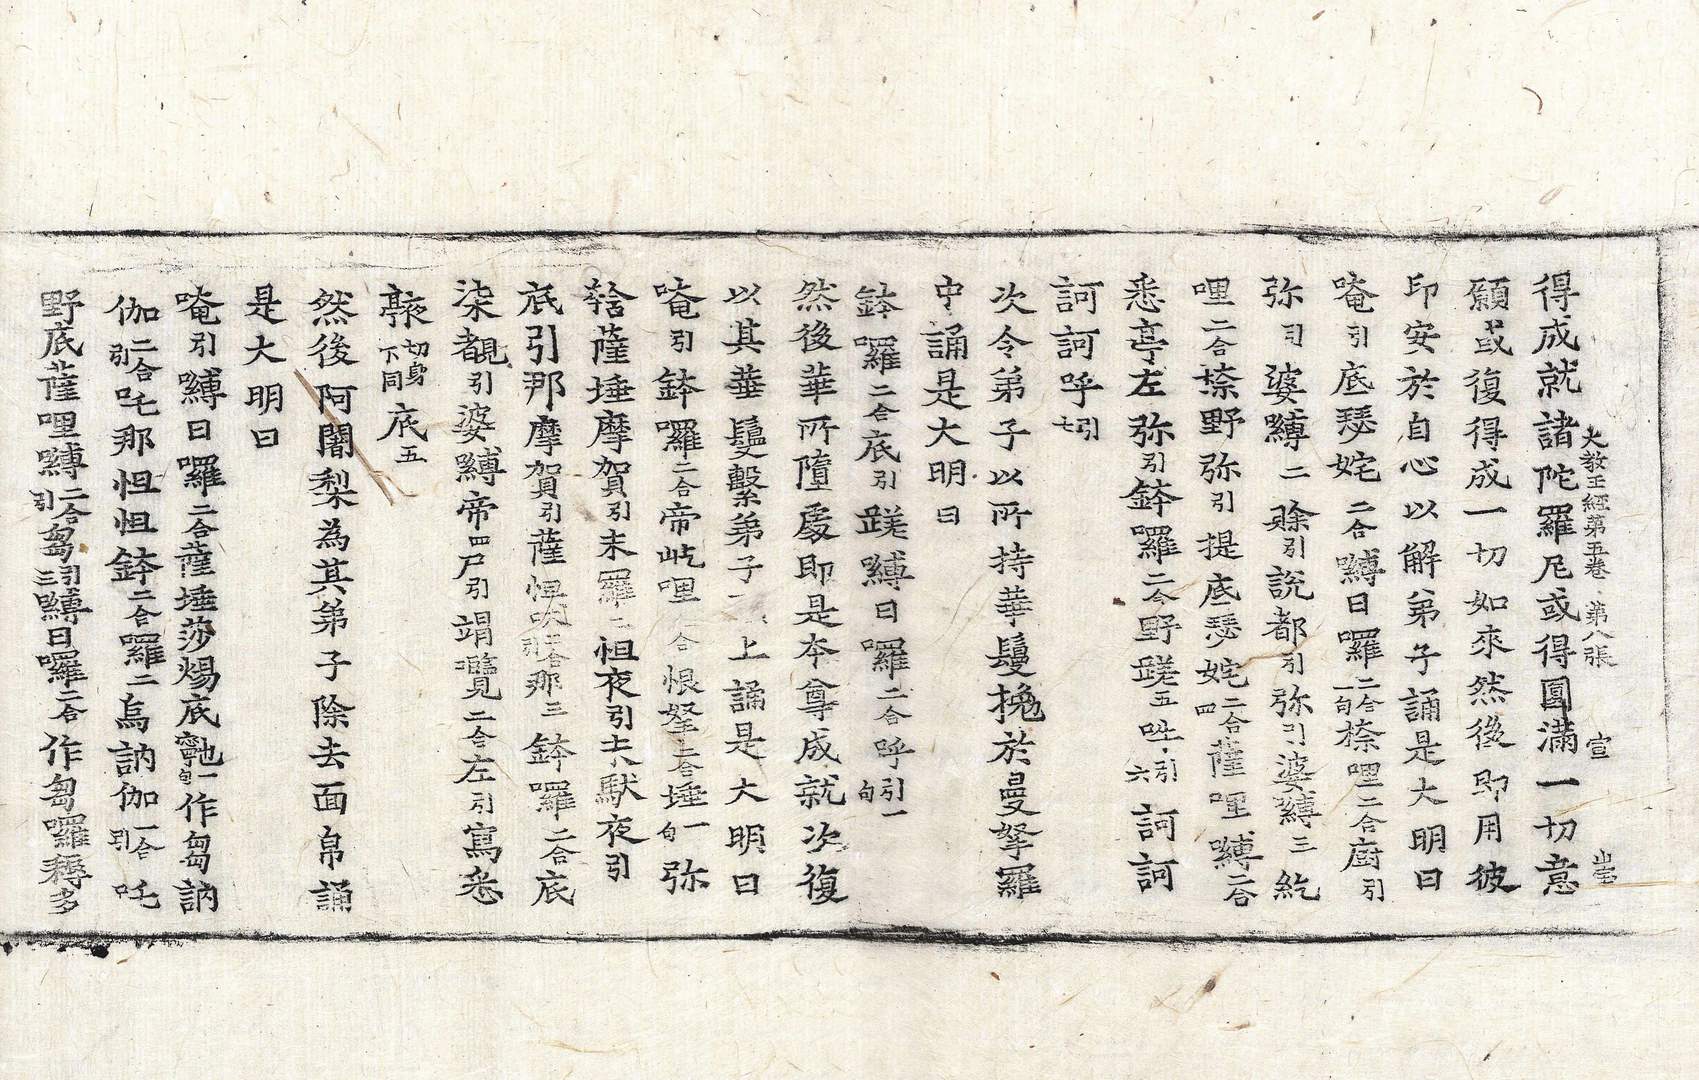 大教王經第五卷 第八張 宣
得成就諸陀羅尼或得圓滿一切意
願或復得成一切如來然後即用彼
印安於自心以解弟子誦是大明曰
唵引底瑟姹二合嚩日囉二合一句捺哩二合廚引
弥引婆嚩二賒引說都引弥引婆嚩三紇
哩二合捺野弥引提底瑟姹二合四薩哩嚩二合
悉亭左弥引鉢囉二合野蹉五吽引六訶訶
訶訶呼引七
次令弟子以所持華鬘挽於曼拏羅
中誦是大明曰
鉢囉二合底引蹉嚩日囉二合呼引一句
然後華所墮處即是本尊成就次復
以其華鬘繫弟子上誦是大明曰
唵引鉢囉二合帝屹哩二合恨拏二合埵一句弥
捨薩埵摩賀引末羅二怛夜引夫馱夜引
底引那摩賀引薩怛那三鉢囉二合底
柒覩引婆嚩帝四尸引竭嚂二合左引寫悉
底五
然後阿闍梨為其弟子除去面帛誦
是大明曰
唵引嚩日囉二合薩埵莎煬底一句作芻訥
伽二合引吒那怛怛鉢二合囉二烏訥伽二合引吒
野底薩哩嚩二合引芻引三嚩日囉二合作芻囉穪多